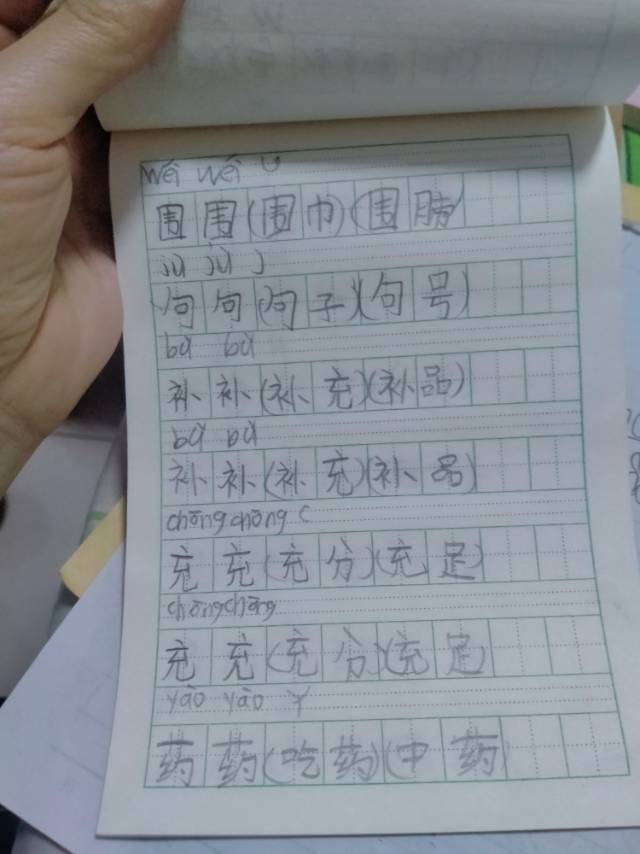 wéi wéi U
围围(围巾)(围脖)
jù jù J
句句(句子)(句号)
bǔ bǔ
补补(补充)(补品)
bǔ bǔ
补补(补充)(补品)
chōng chōng C
充充(充分)(充足)
chōng chōng
充充(充分)(充足)
yào yào Y
药药(吃药)(中药)